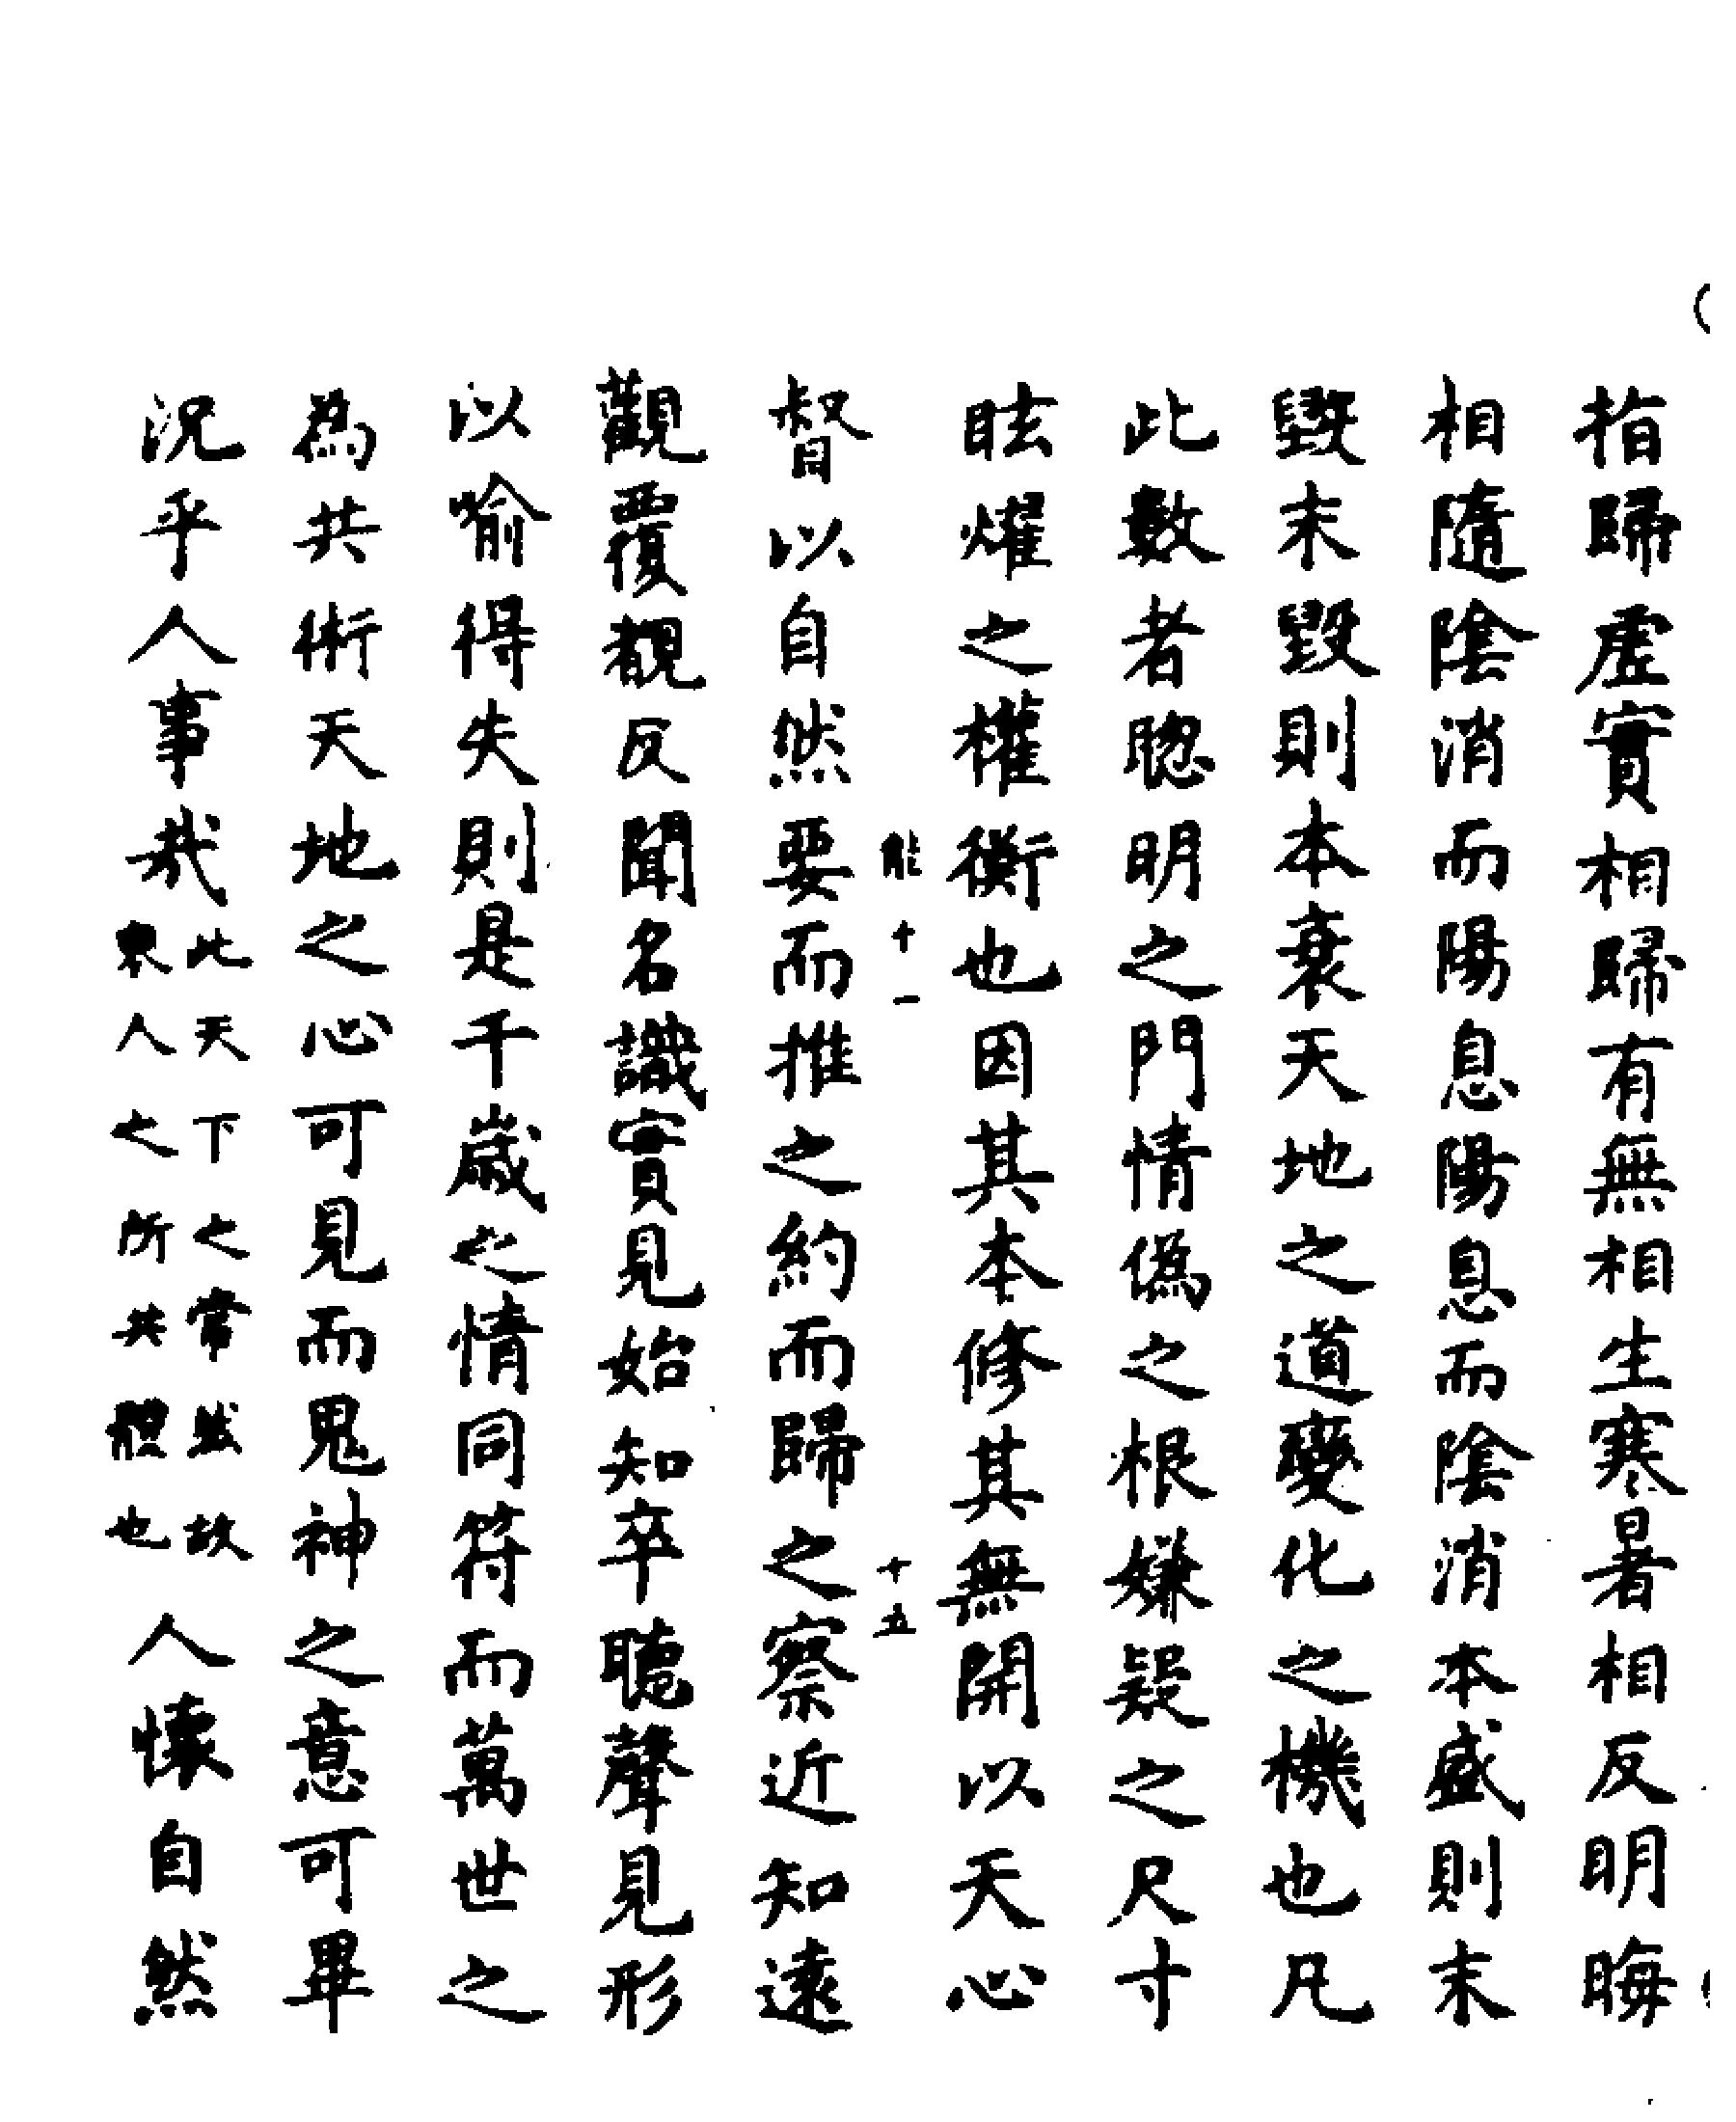 指歸虛實相歸有無相生寒暑相反明晦
相隨陰消而陽息陽息而陰消本盛則末
毀末毀則本衰天地之道變化之機也凡
此數者聰明之門情偽之根嫌疑之尺寸
眩燿之權衡也因其本修其無開以天心
能十一 十五
督以自然要而推之約而歸之察近知遠
觀覆覩反聞名識實見始知卒聽聲見形
以喻得失則是千歲之情同符而萬世之
為共術天地之心可見而鬼神之意可畢
況乎人事哉
此天下之常然故
衆人之所共體也
人懷自然